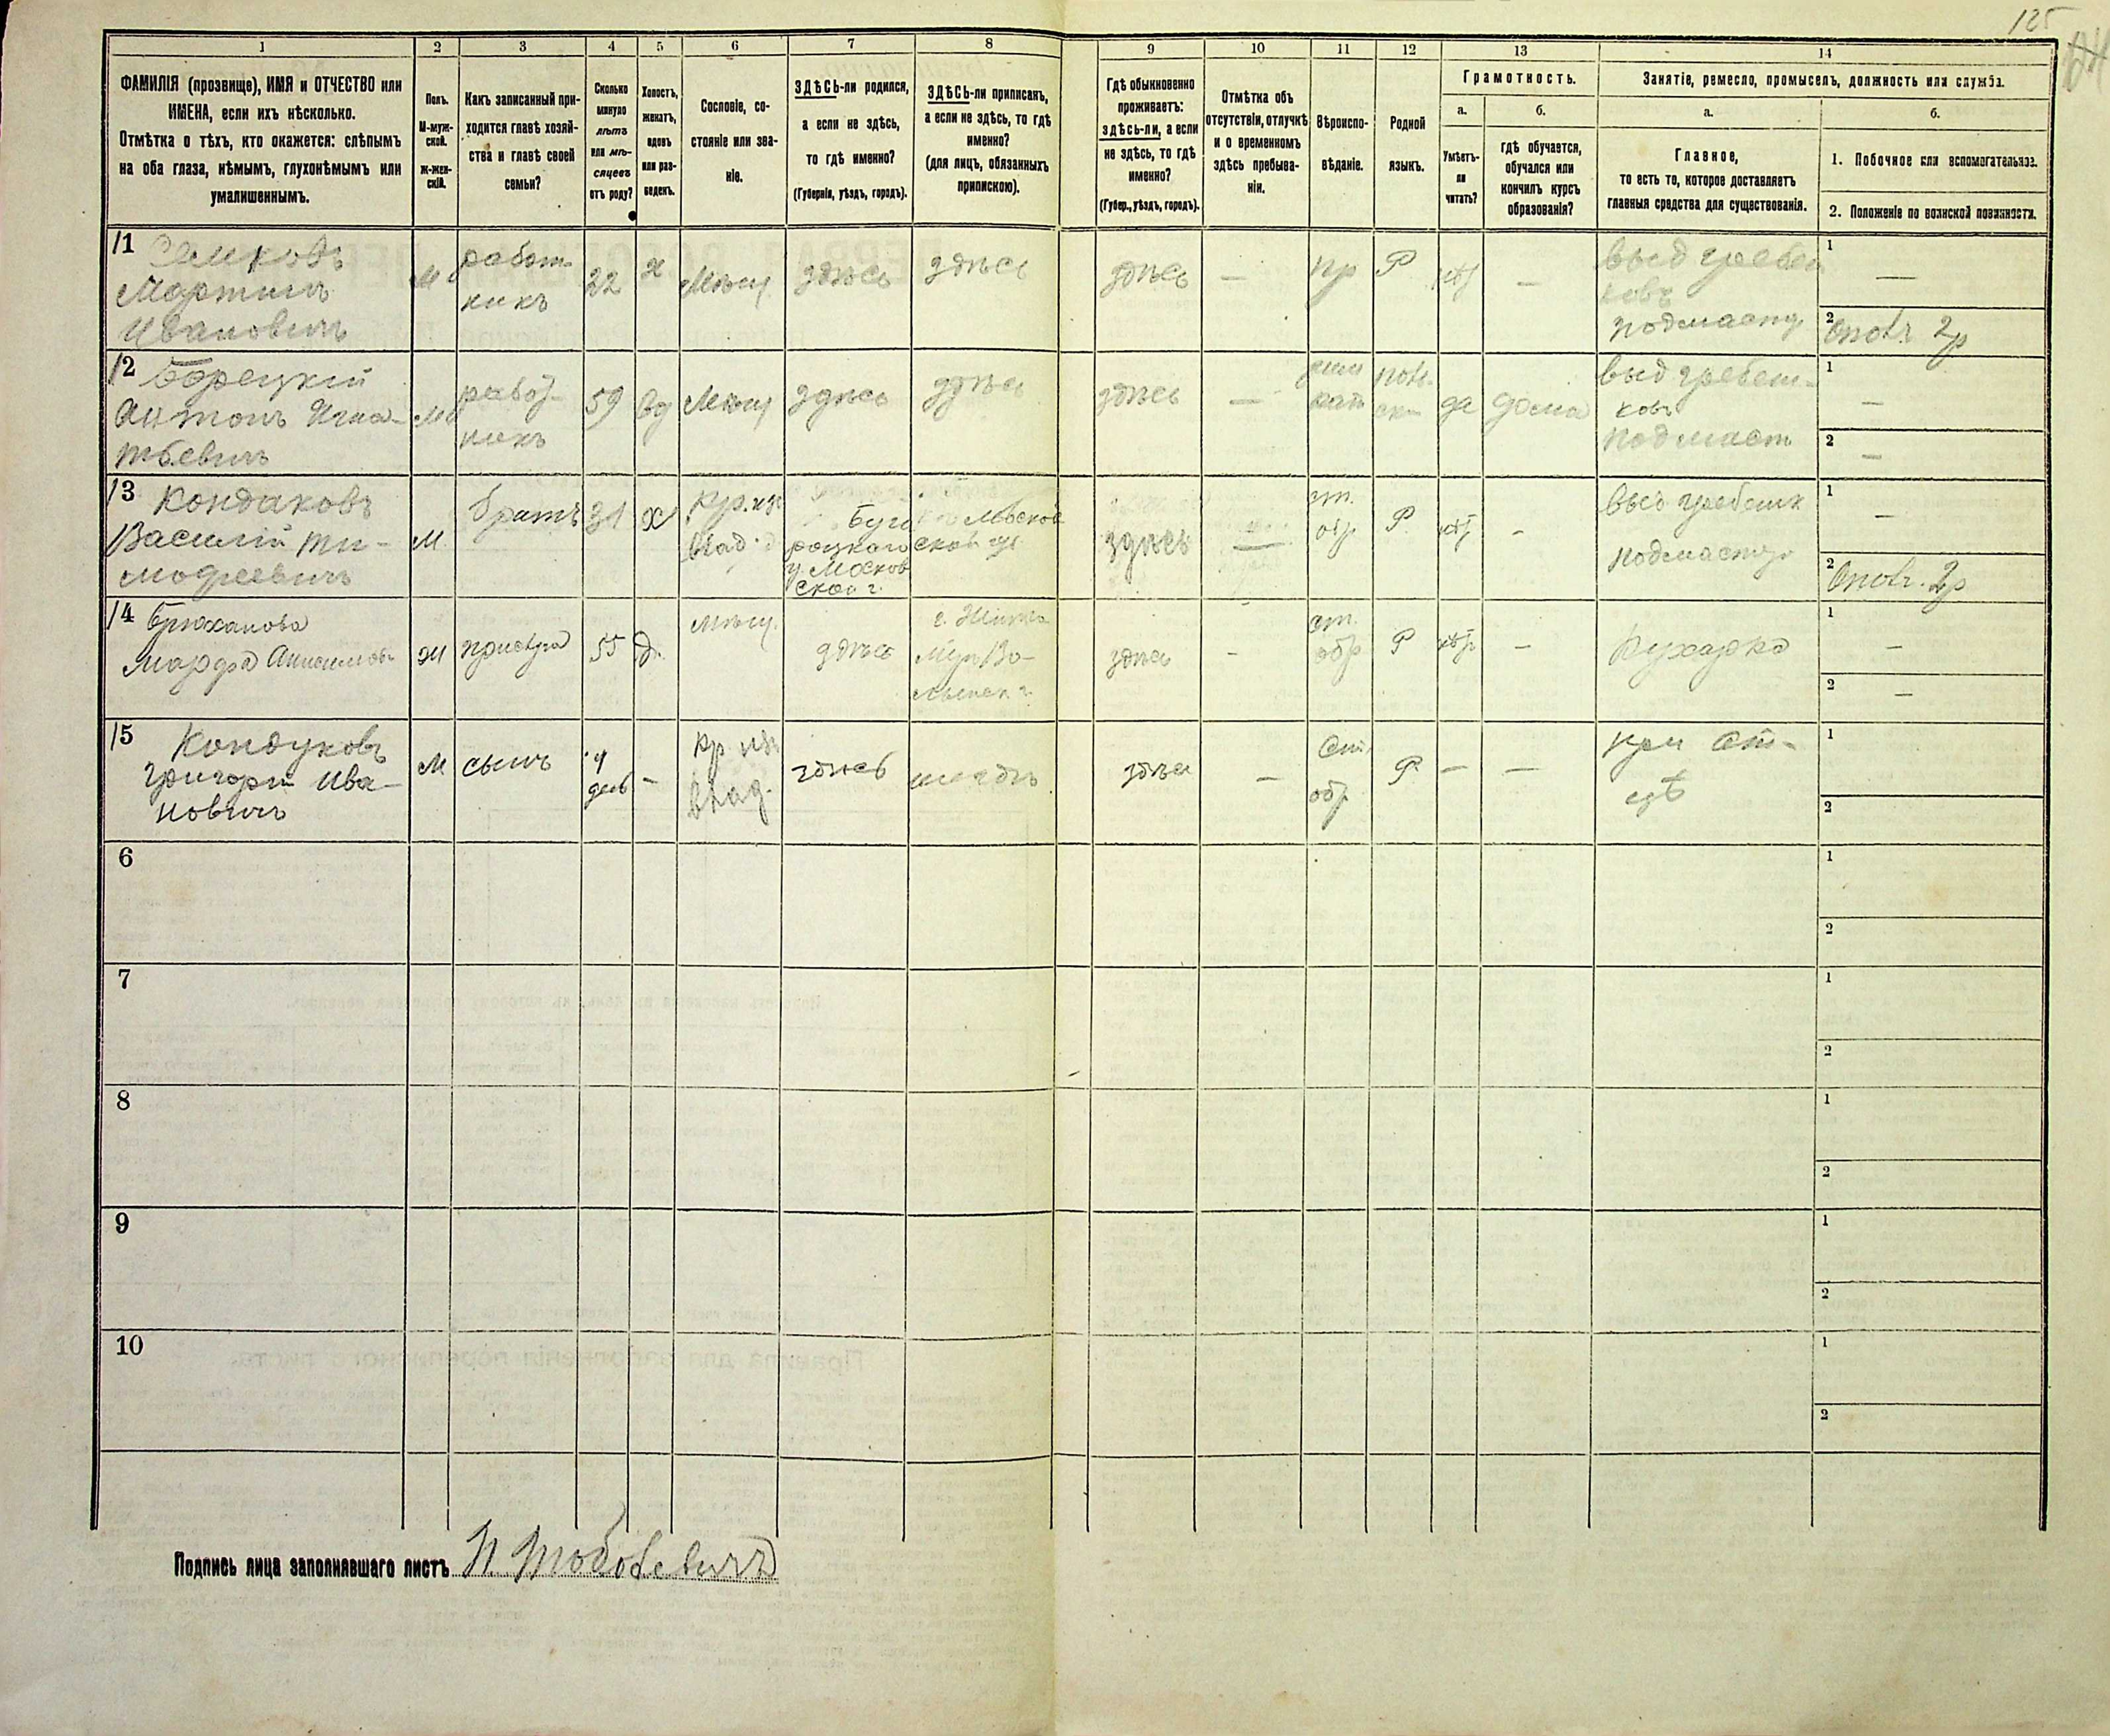 125
1 2 3 4 5 6 7 8 9 10 11 12 13 14
ФАМИЛІЯ (прозвище), ИМЯ и ОТЧЕСТВО или
ИМЕНА, если ихъ нѣсколько.
Отмѣтка о тѣхъ, кто окажется: слѣпымъ
на оба глаза, нѣмымъ, глухонѣмымъ или
умалишеннымъ.
Полъ.
М-муж-
ской.
Ж-жен-
скій.
Какъ записанный при-
ходится главѣ хозяй-
ства и главѣ своей
семьи?
Сколько
минуло
лѣтъ
или мѣ-
сяцевъ
отъ роду?
Холостъ,
женатъ,
вдовъ
или раз-
веденъ.
Сословіе, со-
стояніе или зва-
ніе.
ЗДѢСЬ-ли родился,
а если не здѣсь,
то гдѣ именно?
(Губернія, уѣздъ, городъ).
ЗДѢСЬ-ли приписанъ,
а если не здѣсь, то гдѣ
именно?
(для лицъ, обязанныхъ
припискою).
Гдѣ обыкновенно
проживаетъ:
здѣсь-ли, а если
не здѣсь, то гдѣ
именно?
(Губер., уѣздъ, городъ).
Отмѣтка объ
отсутствіи, отлучкѣ
и о временномъ
здѣсь пребыва-
ніи.
Вѣроиспо-
вѣданіе.
Родной
языкъ.
Грамотность.
а.
Умѣетъ-
ли
читать?
б.
гдѣ обучается,
обучался или
кончилъ курсъ
образованія?
Занятіе, ремесло, промыселъ, должность или служба.
а.
Главное,
то есть то, которое доставляетъ
главныя средства для существованія.
б.
1. Побочное или вспомогательное.
2. Положеніе по воинской повинности.
11
Мартинъ
Ивановичъ
М
работ-
никъ
22
х
Мѣщ
здѣсь
здѣсь
здѣсь
—
пр
Р
—
выд гребен
ковъ
подмаст
1
—
2
2р
12
Борецкій
Антонъ Игна-
тьевичъ
М
работ-
никъ
59
вд
Мѣщ
здѣсь
здѣсь
здѣсь
—
рим
кат
поль
ск
да
дома
выд гребеш-
ковъ
подмаст
1
—
2
—
13
Кондаковъ
Василій Ти-
мофеевичъ
М
братъ
31
х
Кр. из
влад.
роцкаго
у. Москов
ской г.
здѣсь
—
ст.
обр
Р
-
подмаст
1
—
2
2р
14
Брюханова
Марфа Анисимов
Ж
прислуга
55
д.
мѣщ.
здѣсь
здѣсь
-
ст.
обр
Р
—
Кухарка
1
—
2
—
15
Кондуковъ
Григорій Ива-
новичъ
М
сынъ
4
день
-
Кр. из
влад.
здѣсь
здѣсь
—
ст.
обр
Р
—
—
при от-
цѣ
1
2
6
1
2
7
1
2
8
1
2
9
1
2
10
1
2
Подпись лица заполнявшаго листъ